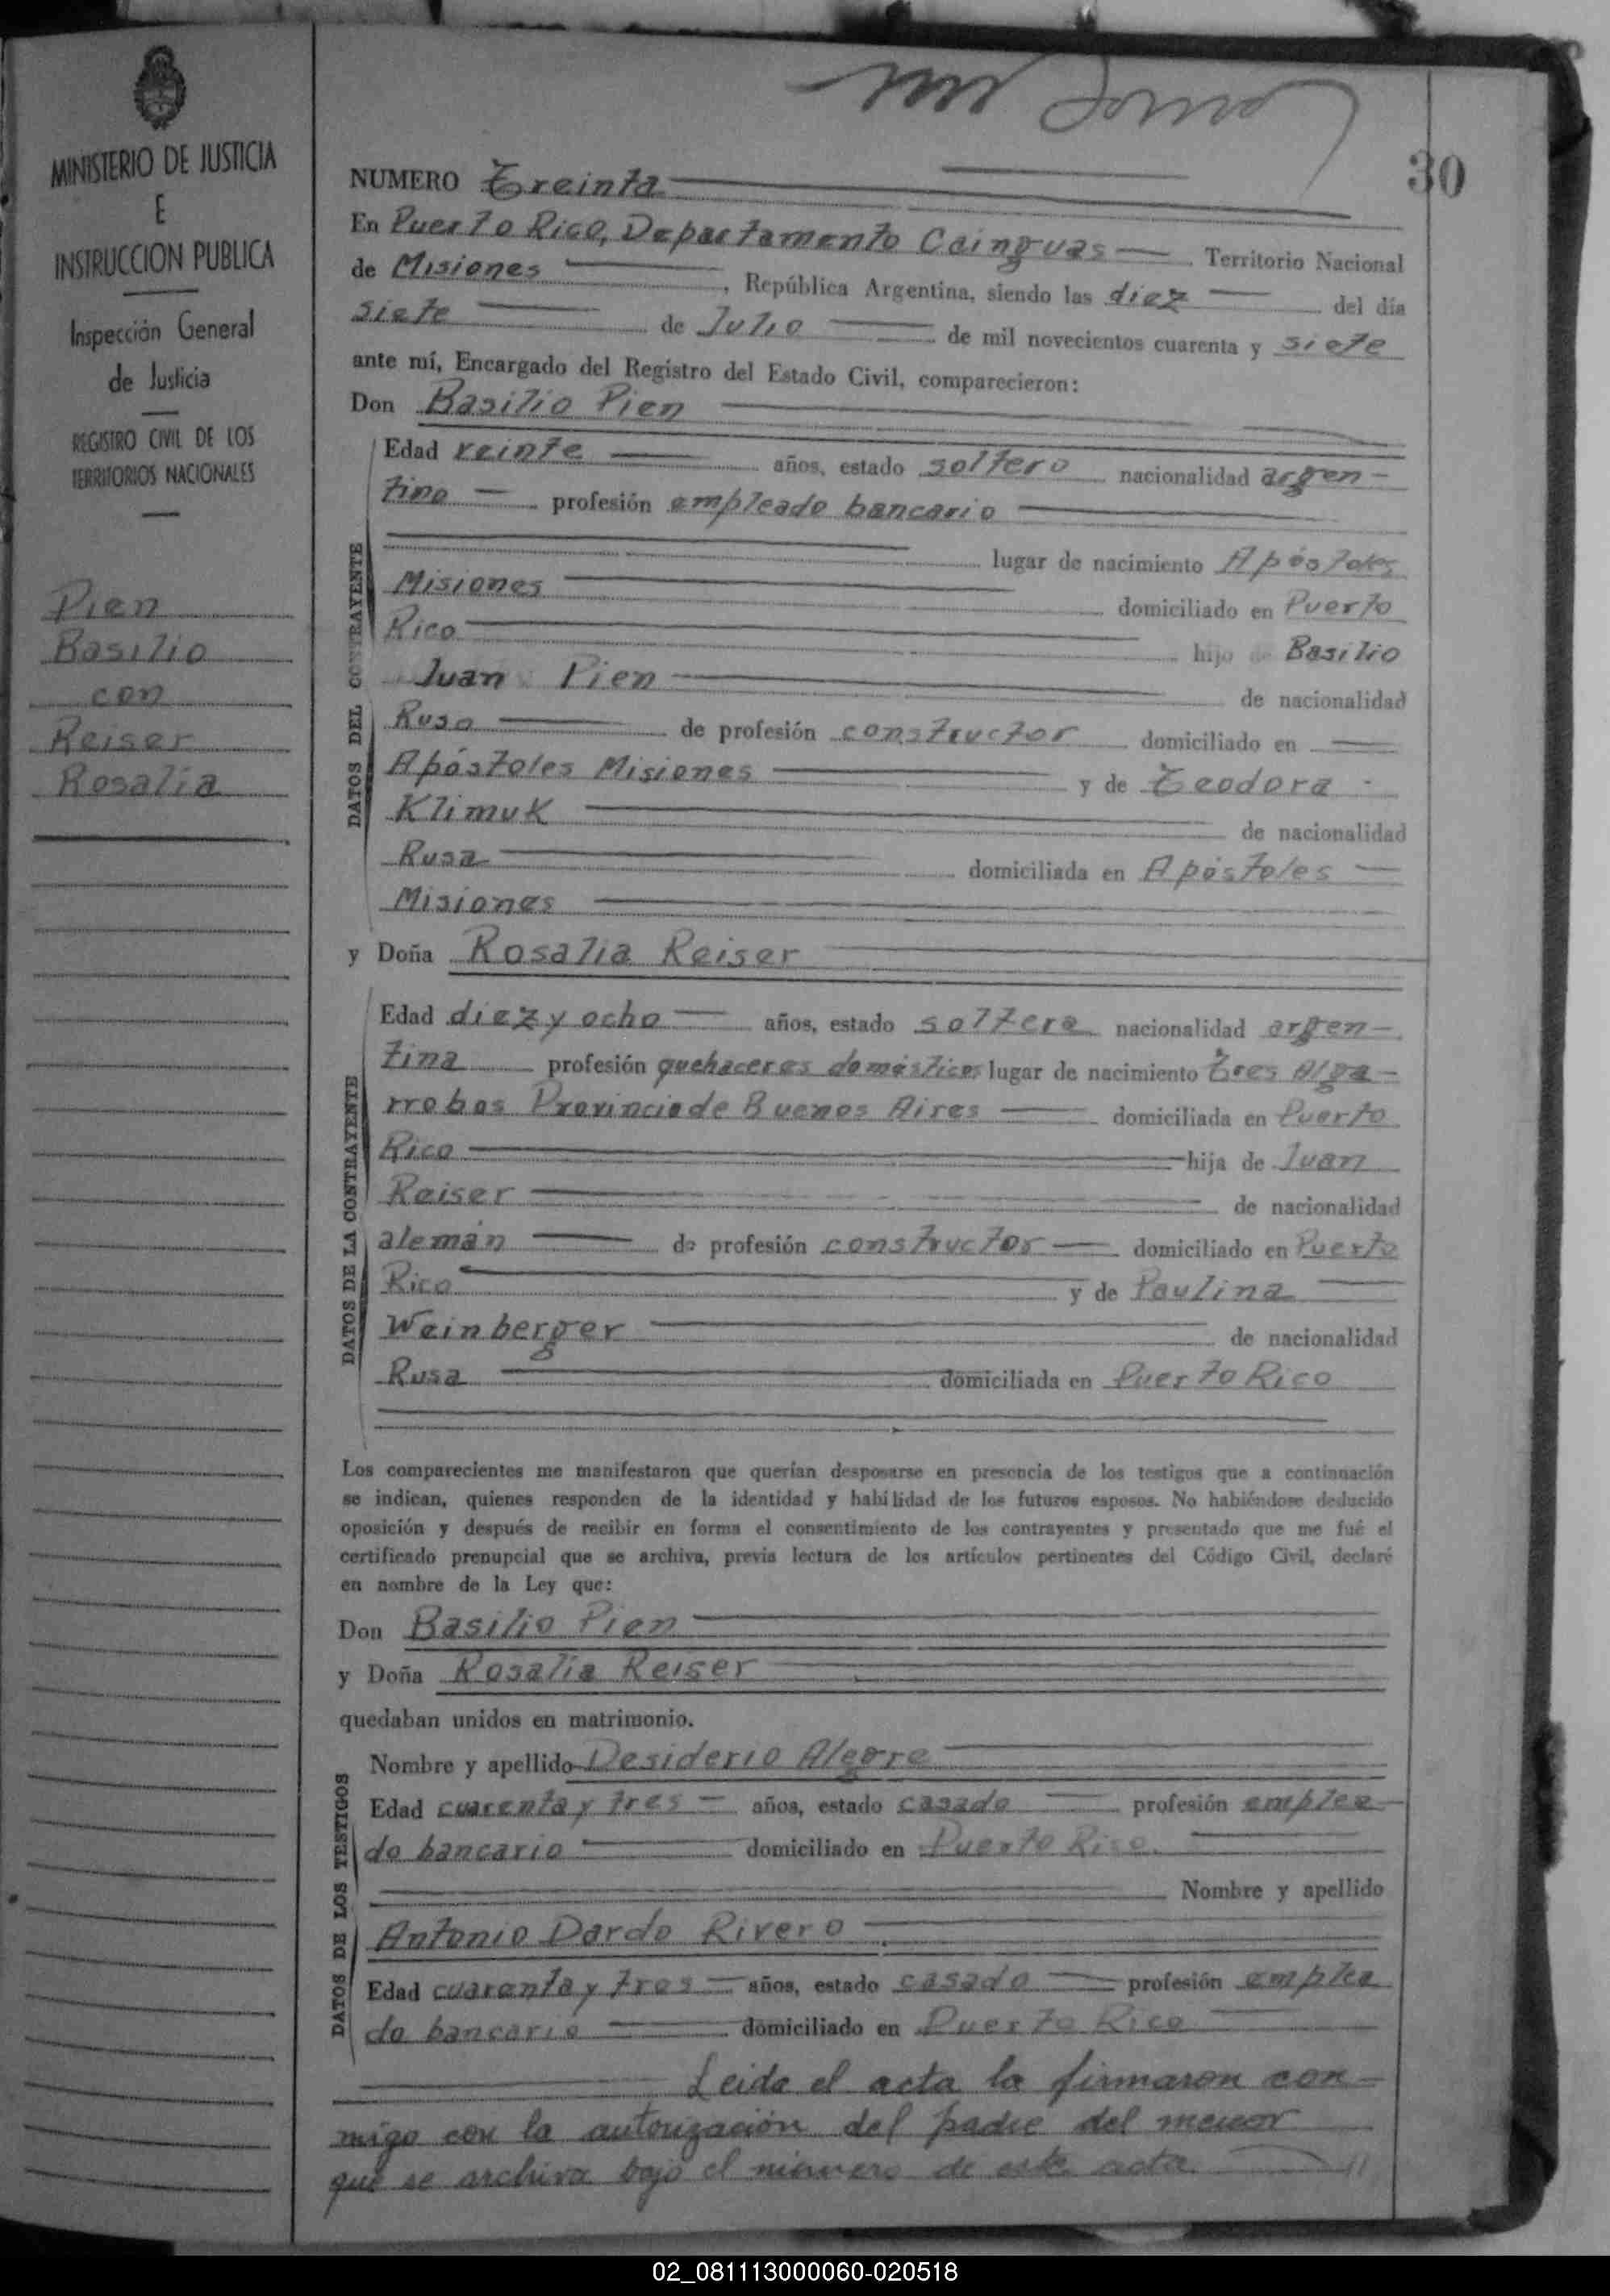 MINISTERIO DE JUSTICIA
E
INSTRUCCION PUBLICA
Inspección General
de Justicia
REGISTRO CIVIL DE LOS
TERRITORIOS NACIONALES
Pien
Basilio
con
Reiser
Rosalía
30
NUMERO Treinta
En Puerto Rico, Departamento Cainguas Territorio Nacional
de Misiones, República Argentina, siendo las diez del día
siete de Julio de mil novecientos cuarenta y siete
ante mí, Encargado del Registro del Estado Civil, comparecieron:
Don Basilio Pien
DATOS DEL CONTRAYENTE
Edad veinte años, estado soltero nacionalidad argen-
tino profesión empleado bancario
lugar de nacimiento Apóstoles
Misiones domiciliado en Puerto
Rico hijo de Basilio
Juan Pien de nacionalidad
Ruso de profesión constructor domiciliado en
Apóstoles Misiones y de Teodora
Klimuk de nacionalidad
Rusa domiciliada en Apóstoles
Misiones
y Doña Rosalia Reiser
DATOS DE LA CONTRAYENTE
Edad diez y ocho años, estado soltera nacionalidad argen-
tina profesión quehaceres domésticos lugar de nacimiento Tres Alga-
rrobos Provincia de Buenos Aires domiciliada en Puerto
Rico hija de Juan
Reiser de nacionalidad
alemán de profesión constructor domiciliado en Puerto
Rico y de Paulina
Weinberger de nacionalidad
Rusa domiciliada en Puerto Rico
Los comparecientes me manifestaron que querían desposarse en presencia de los testigos que a continuación
se indican, quienes responden de la identidad y habilidad de los futuros esposos. No habiéndose deducido
oposición y después de recibir en forma el consentimiento de los contrayentes y presentado que me fué el
certificado prenupcial que se archiva, previa lectura de los artículos pertinentes del Código Civil, declaré
en nombre de la Ley que:
Don Basilio Pien
y Doña Rosalía Reiser
quedaban unidos en matrimonio.
DATOS DE LOS TESTIGOS
Nombre y apellido Desiderio Alegre
Edad cuarenta y tres años, estado casado profesión emplea-
do bancario domiciliado en Puerto Rico.
Nombre y apellido
Antonio Dardo Rivero
Edad cuarenta y tres años, estado casado profesión emplea
do bancario domiciliado en Puerto Rico
Leida el acta la firmaron con-
migo con la autorización del padre del menor
que se archiva bajo el número de este acta.
02_081113000060-020518